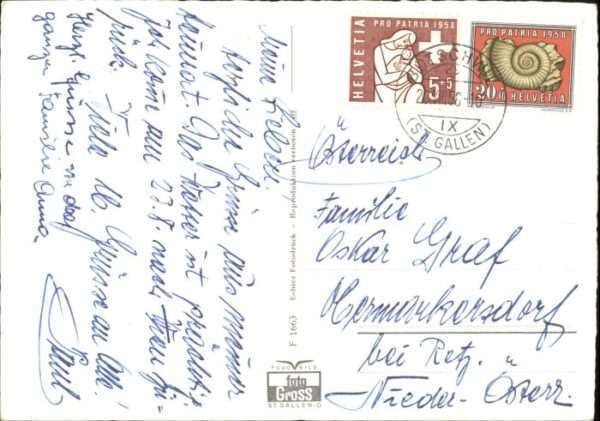 Meine Lieben!
Herzliche Grüsse aus meiner
Heimat. Das Wetter ist prächtig.
Ich komme am 27.8. nach
zurück. Viele lb. Grüsse an Alle!
Paul
Herzl. Grüsse an die
ganze Familie Anna
F 1663 Echter Fotodruck - Reproduktion verboten
FLUGBILD
foto
Gross
ST. GALLEN-O
HELVETIA
PRO PATRIA 1958
5+5
PRO PATRIA 1958
20+10 HELVETIA
IX
(ST. GALLEN)
Österreich
Familie
Oskar Graf
Hermarkersdorf
bei Retz.
Nieder-Österr.